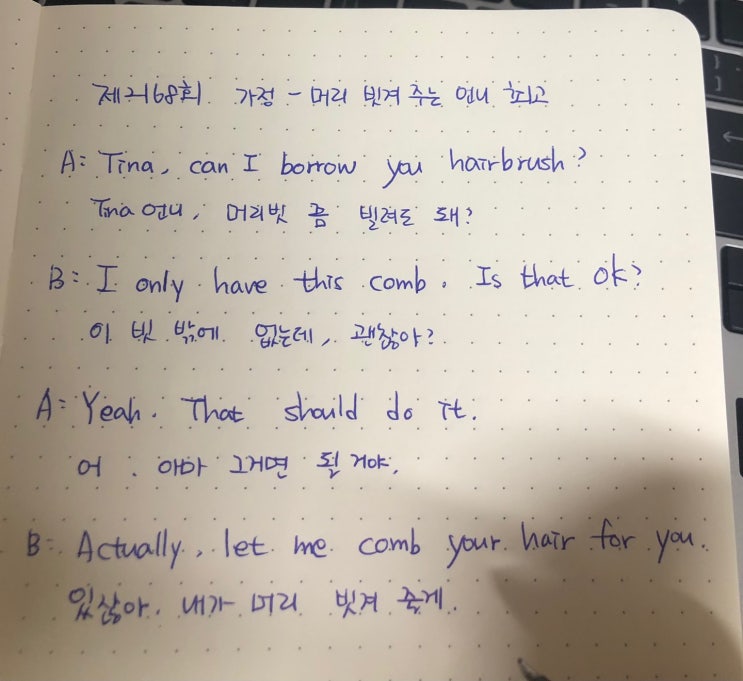 제2168회. 가정 - 머리 빗겨 주는 언니 최고
A: Tina, can I borrow you hairbrush?
Tina 언니, 머리빗 좀 빌려도 돼?
B: I only have this comb. Is that ok?
이 빗 밖에 없는데, 괜찮아?
A: Yeah. That should do it.
어. 아마 그거면 될 거야.
B: Actually, let me comb your hair for you.
있잖아. 내가 머리 빗겨 줄게.